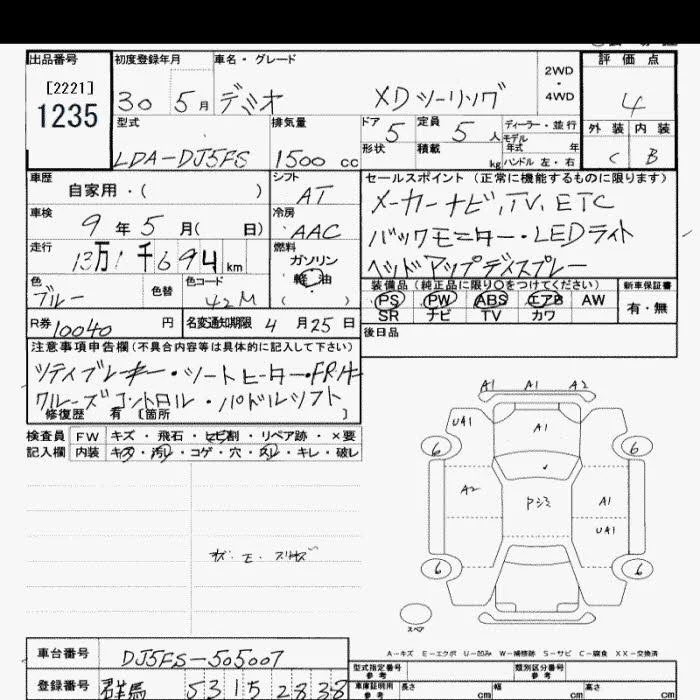 出品番号 初度登録年月 車名・グレード 2WD・4WD 評価点
[2221]
1235
30 5月 デミオ XDツーリング 4
型式 排気量 ドア 5 定員 5人 ディーラー・並行 外装 内装
モデル年式 年
LDA-DJ5FS 1500 cc 形状 積載 kg ハンドル 左・右 C B
車歴 自家用・( ) シフト AT
セールスポイント(正常に機能するものに限ります)
車検 9年5月( 日) 冷房 AAC
メーカーナビ,TV,ETC
バックモニター・LEDライト
ヘッドアップディスプレー
走行 13万1千694km 燃料 ガソリン 軽油 ( )
色 ブルー 色替 色コード 42M
装備品(純正品に限り○をつけてください) 新車保証書
PS PW ABS エアB AW 有・無
SR ナビ TV カワ
R券 10040円 名変通知期限 4月25日
後日品
注意事項申告欄(不具合内容等は具体的に記入して下さい)
シートヒーター・
クルーズコントロール・パドルシフト
修復歴 有 [箇所
検査員 FW キズ・飛石・ヒビ割・リペア跡・×要
記入欄 内装 キズ・汚レ・コゲ・穴・スレ・キレ・破レ
A1 A1 A2
UA1 A1
6 6
A2 A1
UA1
6 6
スペア
A-キズ E-エクボ U-凹み W-補修跡 S-サビ C-腐食 XX-交換済
車台番号 DJ5FS-505007
型式指定番号 参考 類別区分番号 参考
登録番号 群馬 531 2838
車庫証明用 参考 長さ cm 幅 cm 高さ cm